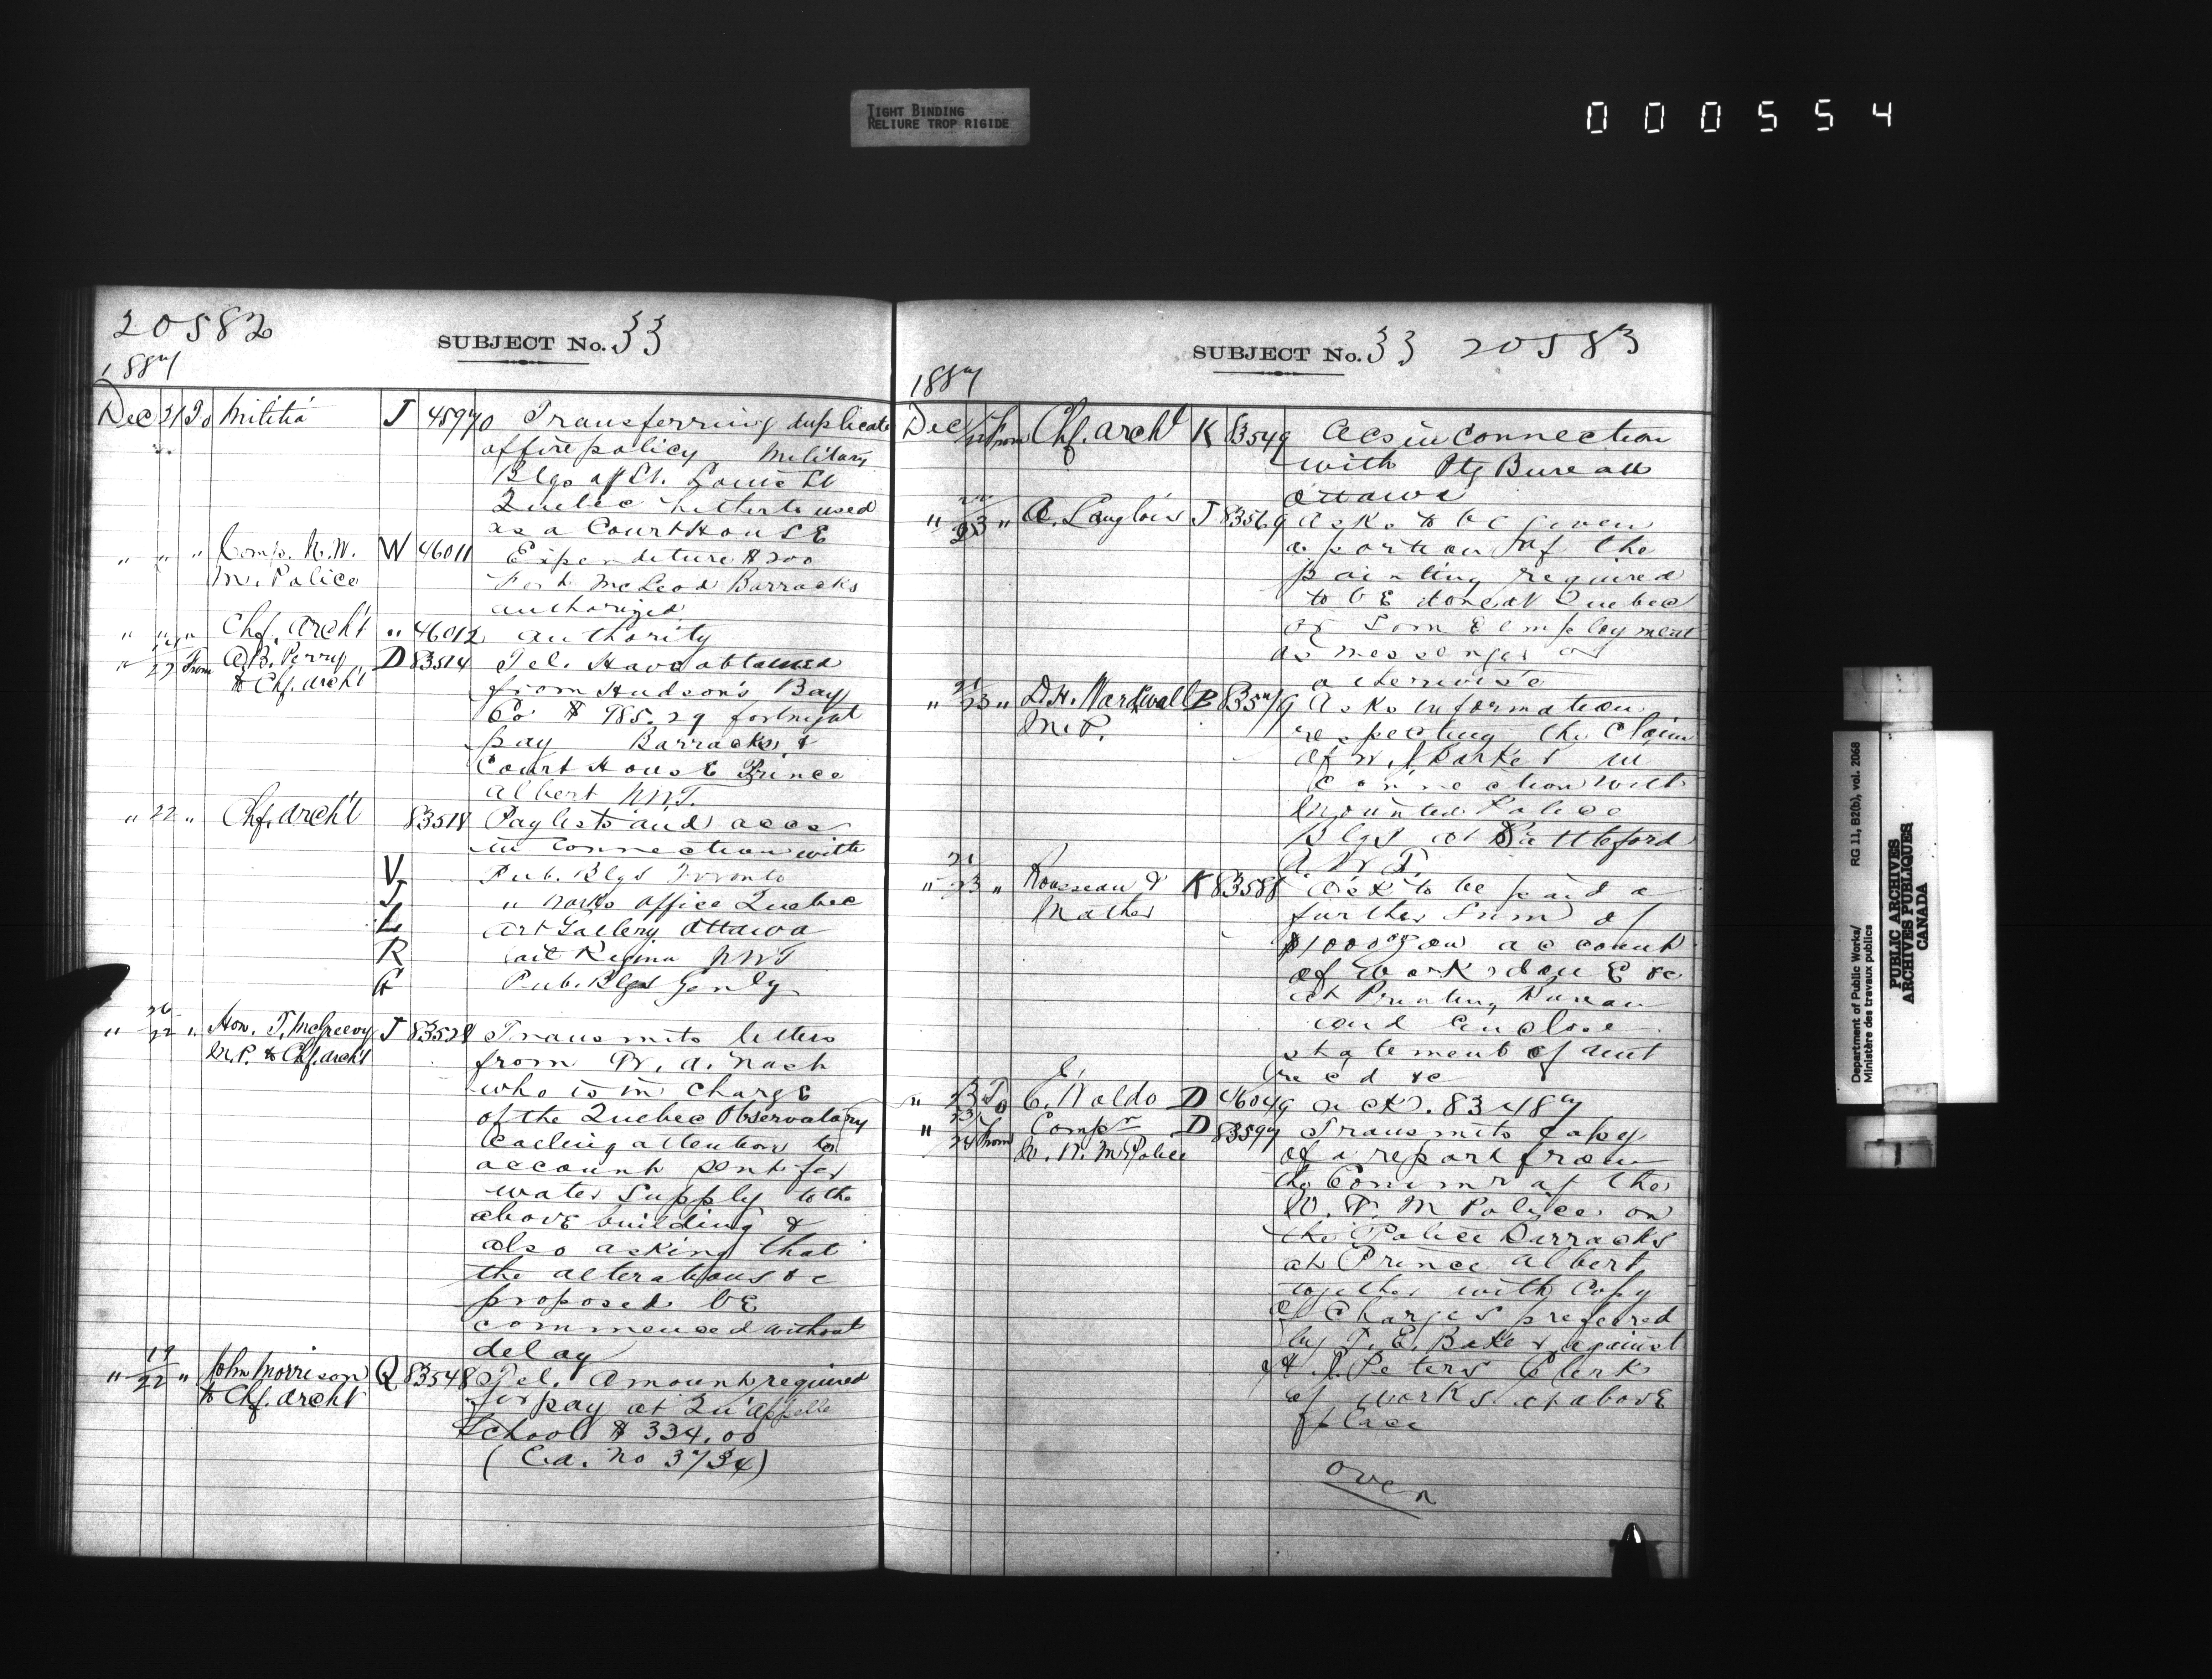 TIGHT BINDING
RELIURE TROP RIGIDE
000554
20582
SUBJECT No. 33
1887
Dec 21 To Militia J 45970 Transferring duplicate
of fire policy Military
Blgs of St. Louis St
Quebec hitherto used
as a Court House
" " " Comp. N.W. W 46011 Expenditure $200
M. Police Fort McLeod Barracks
authorized
" " " Chf. Archt " 46012 authority
" 22 From A.B. Perry D 83514 Tel. Have obtained
to Chf. Archt from Hudson's Bay
Co $ 985.29 fortnight
pay Barracks &
Court House Prince
Albert N.W.T.
" 22 " Chf. Archt 83518 Paylists and accs
in connection with
V Pub. Blgs Toronto
J " Works office Quebec
L Art Gallery Ottawa
R Jail Regina NWT
G Pub. Blgs Genly
" 22 " Hon. T. McGreevy J 83528 Transmits letters
M.P. to Chf. Archt from W. A. Nash
who is in charge
of the Quebec Observatory
Calling attention to
account sent for
water supply to the
above building &
also asking that
the alterations &c
proposed be
commenced without
delay
" 19/22 " John Morrison Q 83548 Tel. Amount required
to Chf. Archt for pay at Qu'Appelle
School $ 334.00
(C.a. No 3734)
SUBJECT No. 33 20583
1887
Dec 22 From Chf. Archt K 83549 Acs in Connection
with Ptg Bureau
Ottawa
" 22/23 " A. Langlois J 83569 asks to be given
a portion of the
painting required
to be done at Quebec
or some employment
as messenger or
otherwise
" 21/23 " D.H. B 83579 asks information
M.P. respecting the claim
of Parker in
connection with
Mounted Police
Blgs at Battleford
N.W.T.
" 21/23 " Rousseau & K 83588 Ask to be paid a
Mather further sum of
$1000 on account
of works done &c
at Printing Bureau
and enclose
statement of amt
rec'd &c
" 23 To C. Waldo D 46049 ackg. 83487
" 23/24 From Compr D 83597 Transmits copy
N. W. M Police of a report from
the Commr of the
N. W. M Police on
the Police Barracks
at Prince Albert
together with Copy
of Charges preferred
by T. E. Baker against
H. J. Peters Clerk
of works at above
place
over
Department of Public Works/
Ministère des travaux publics
RG 11, B2(b), vol. 2068
PUBLIC ARCHIVES
ARCHIVES PUBLIQUES
CANADA